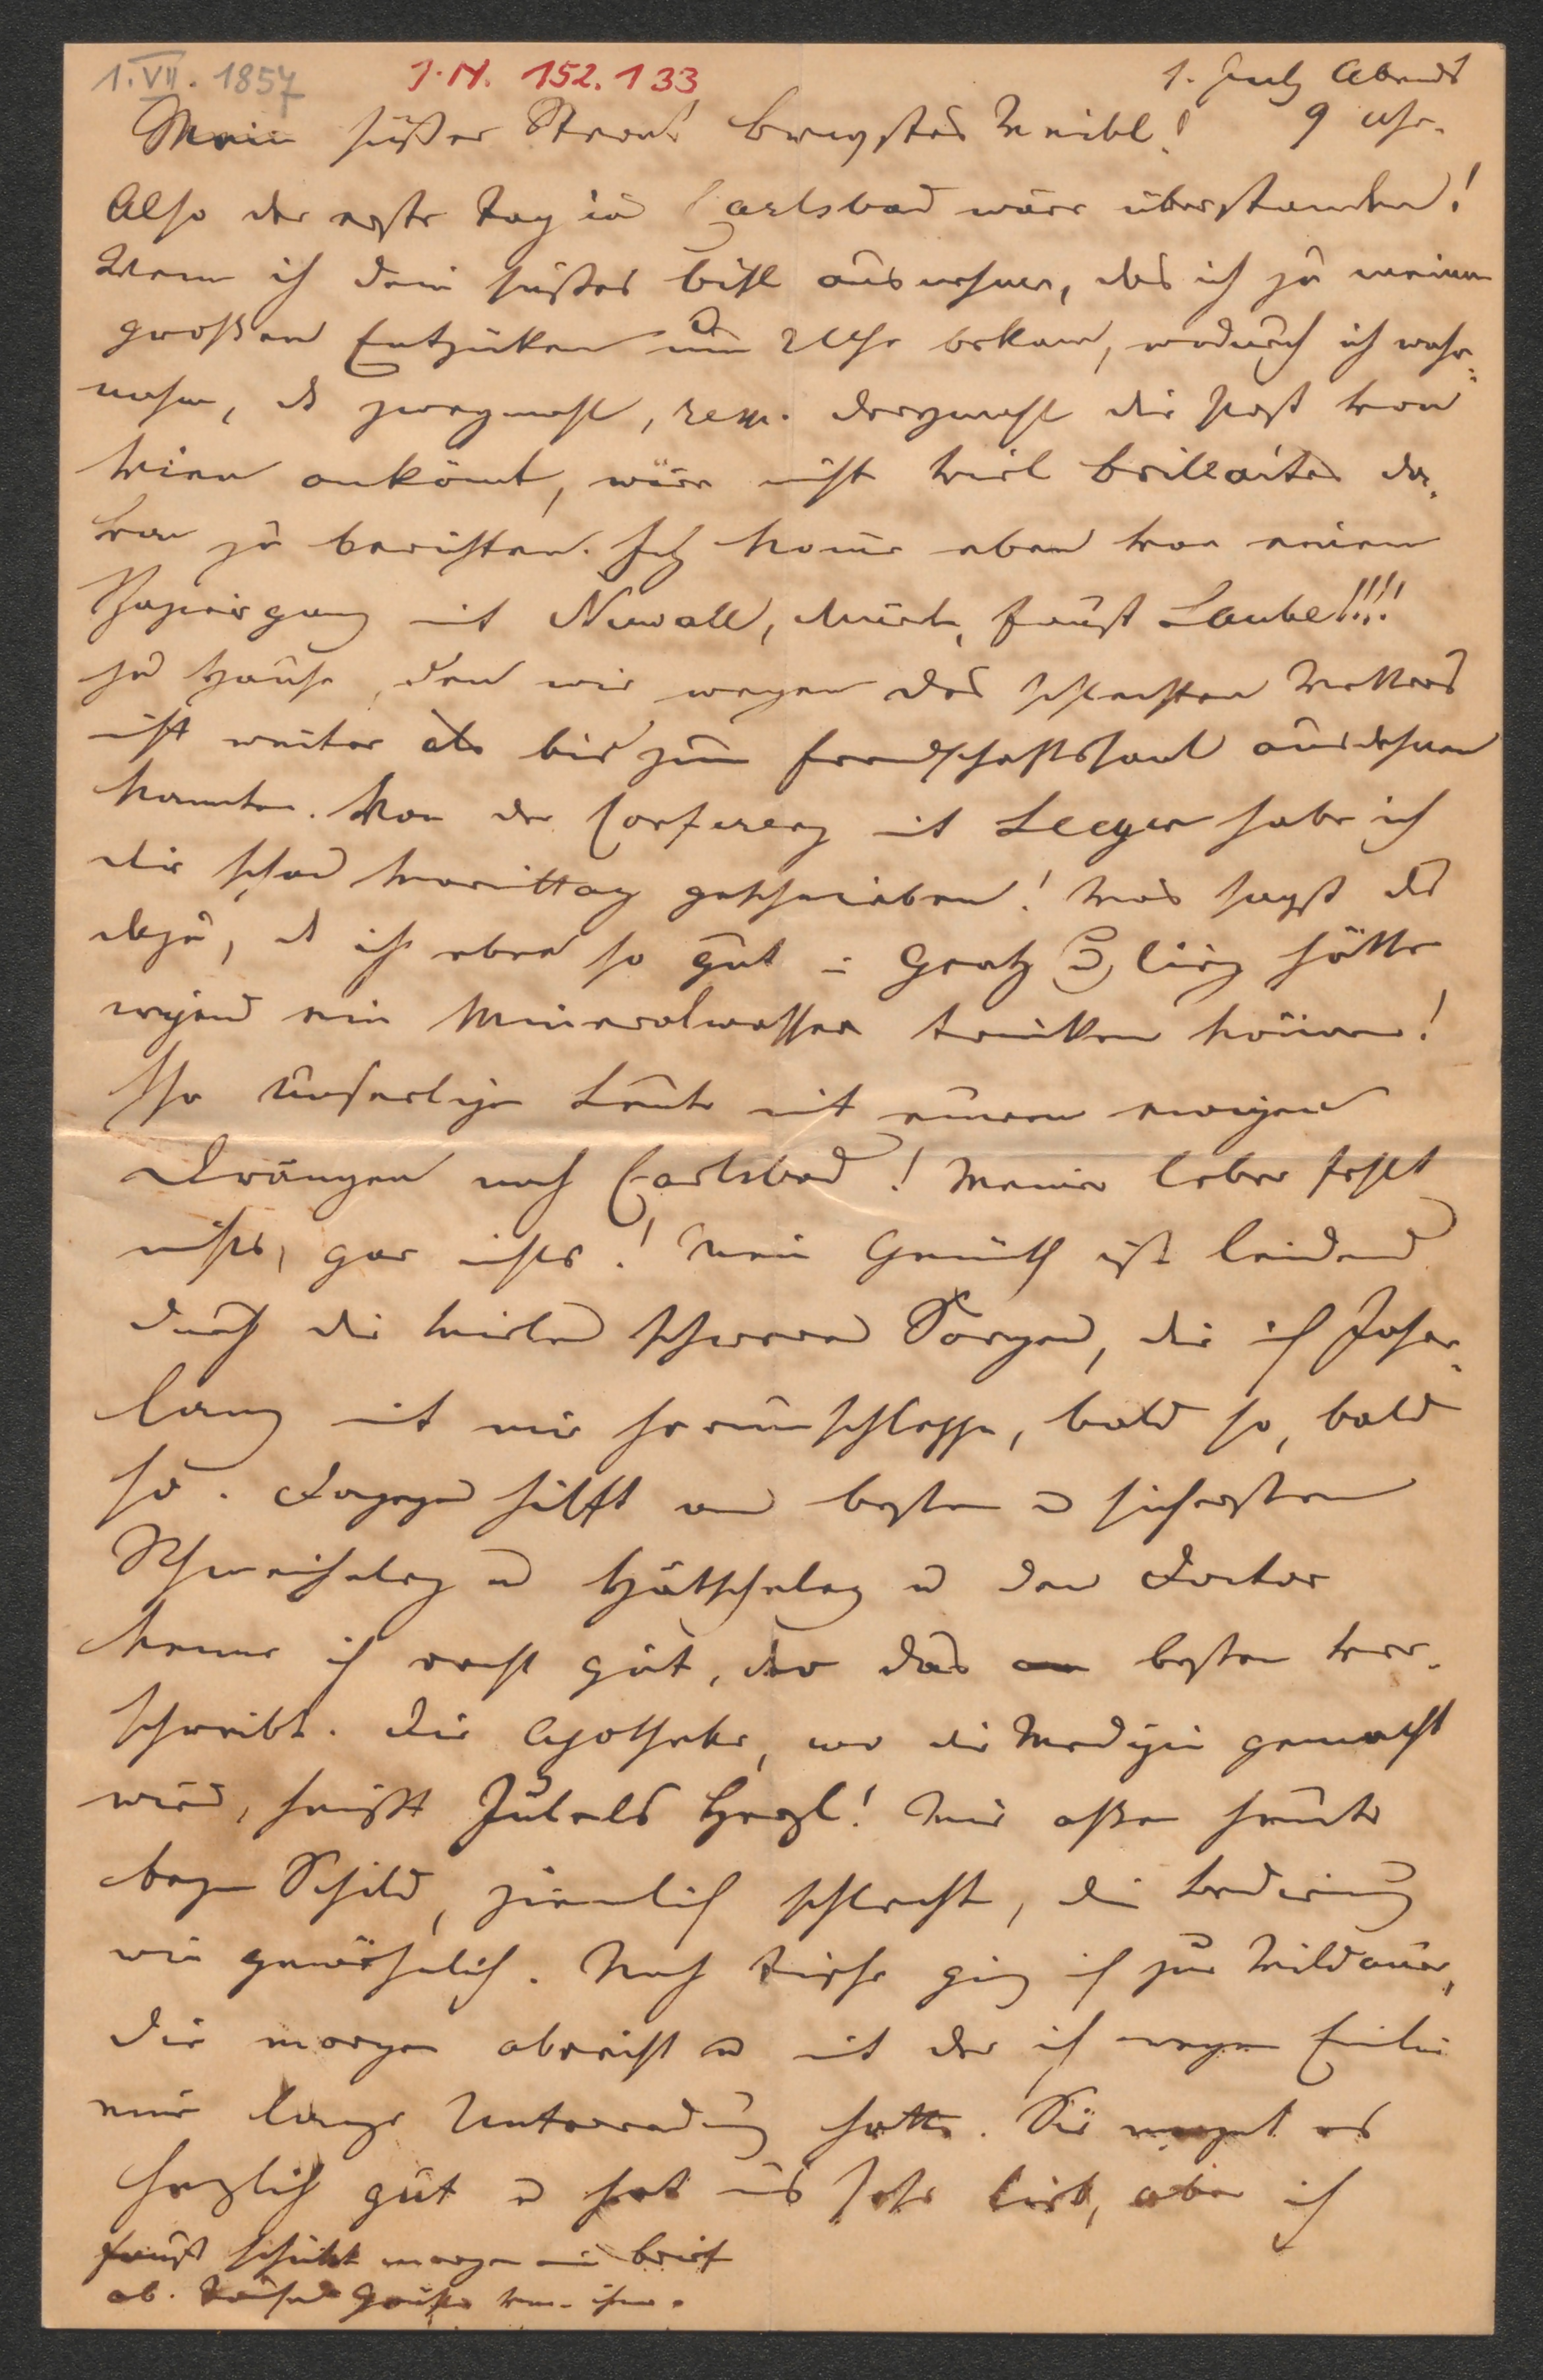 1. VII. 1857
J.N. 152.133
1. July Abends
9 Uhr.
Mein süßer Strauß bravstes Weibl!
Also der erste Tag in Carlsbad wäre überstanden!
Wenn ich dein süßes bißl ausnehme, das ich zu meinem
großen Entzücken um 2 Uhr bekam, wodurch ich wahr-
nahm, daß zweymahl, resp. dreymahl die Post von
Wien ankömt, wäre nicht viel brillantes da-
von zu berichten. Ich komme eben von einem
Spaziergang mit Neuwall, Faust Laube!!!!
zu Hause, den wir wegen des schlechten Wetters
nicht weiter als bis zum Freundschaftssaal ausdehnen
konnten. Von der Conferenz mit Seegen habe ich
dir schon Vormittag geschrieben! Was sagst du
dazu, daß ich eben so gut in Gratz od. Linz hätte
irgend ein Mineralwasser trinken können!
Ihr unseligen Leute mit eurem ewigen
Drängen nach Carlsbad! Meiner Leber fehlt
nichts, gar nichts! Mein Gemüth ist leidend
durch die vielen schweren Sorgen, die ich Jahre-
lang mit mir herumschleppe, bald so, bald
so. Dagegen hilft am besten u sichersten
Schmeicheley u Hätscheley u den Doctor
kenne ich recht gut, der das am besten ver-
schreibt. Die Apotheke, wo die Medizin gemacht
wird, heißt Jubels Herzl! Wir aßen heute
beym Schild, ziemlich schlecht, die Bedienung
wie gewöhnlich. Nach Tische ging ich zur Wildauer,
die morgen abreist u mit der ich wegen Emilie
eine lange Unterredung hatte. Sie meynt es
herzlich gut u hat uns sehr lieb, aber ich
Faust schickt morgen ein Brief
ab. Tausend Grüße von ihm.